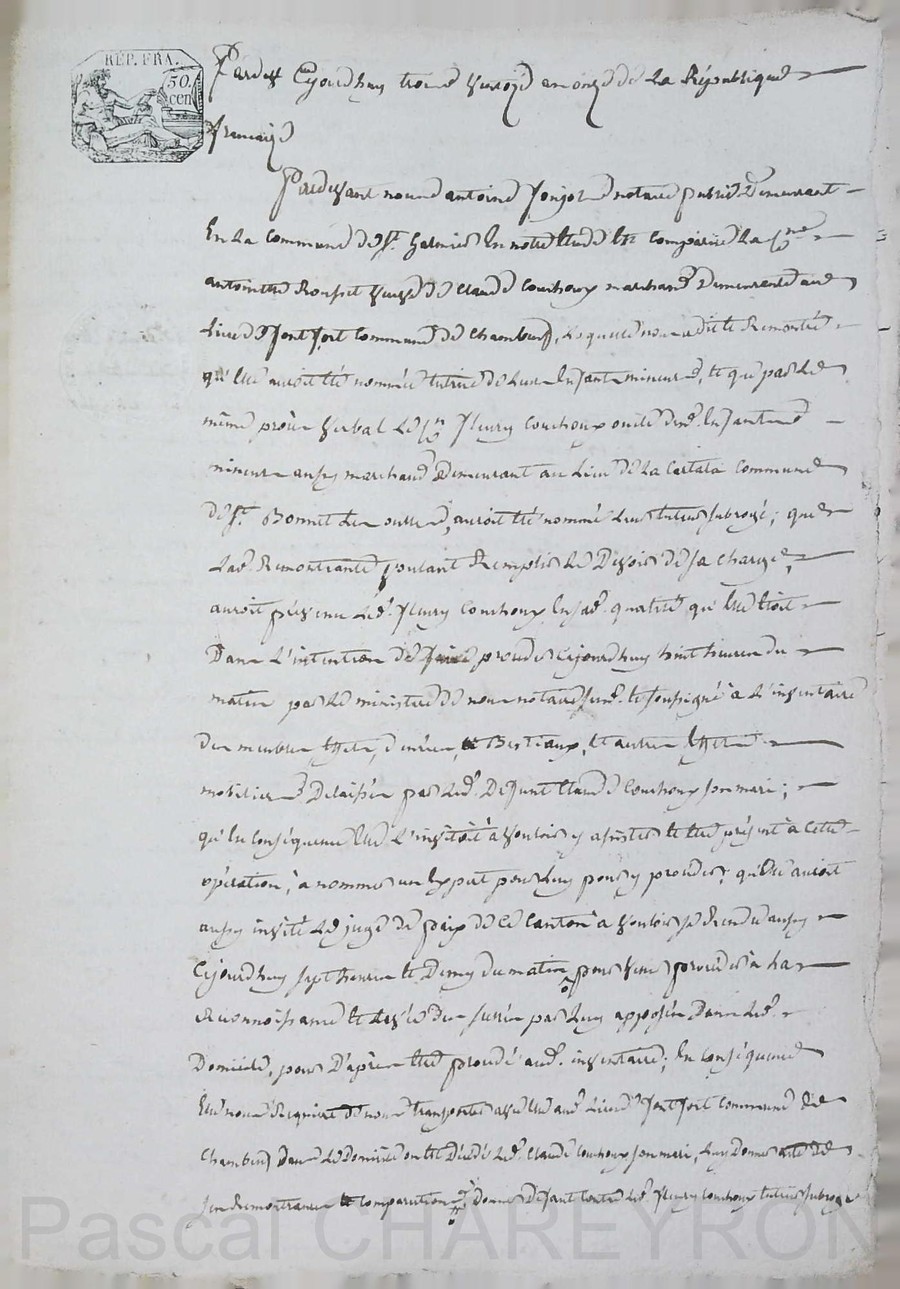 REP. FRA.
50.
cen
Cejourdhuy treize an onze de La République
francaise
Pardevant nous antoine notaire public Demeurant
En La Commune de St. Galmier En notre Etude Est Comparüe La
antoinette veuve de Claude Couchoux marchand Demeurente au
Lieu de fontfort Commune de Chambeuf, Laquelle nous a dit et Remontré
qu'Elle auroit été nommée tutrice de Leurs Enfants mineurs, et que par Le
même procès verbal Le Cn fleury Couchoux oncle desd. Enfants
mineurs aussy marchand Demeurant au Lieu de La Commune
de St. Bonnet Les oulles, auroit été nommé Leur tuteur subrogé; que
Lad. Remontrante voulant Remplir Le Devoir de sa charge,
auroit prévenu Led. fleury Couchoux En sad. qualité qu'Elle Etoit
Dans L'intention de procéder Cejourdhuy huit heures du
matin par Le ministère de nous notaire susd. et soussigné à L'inventaire
des meubles, Effets, denrées, Bestiaux, et autres Effets
mobiliers Délaissés par Led. Défunt Claude Couchoux son mari;
qu'En Conséquence Elle L'invitoit à vouloir y assister et Etre présent à Cette
opération, à nommer un Expert pour Luy pour y procéder, qu'Elle auroit
aussy invité Le juge de paix de Ce Canton à vouloir se Rendre aussy
Cejourdhuy sept heures et Demy du matin pour venir procéder à La
Reconnoissance et Levée des scellés par Luy apposés Dans Led.
Domicile, pour D'après Etre procédé aud. inventaire; En Conséquence
Elle nous Requiert de nous transporter avec Elle aud. Lieu de fontfort Commune de
Chambeuf Dans Le Domicile où Est Décédé Led. Claude Couchoux son mari, Luy Donner acte de
ses Remontrances et Comparution, Donner Défaut Contre Led. fleury Couchoux tuteur subrogé
Pascal CHAREYRON